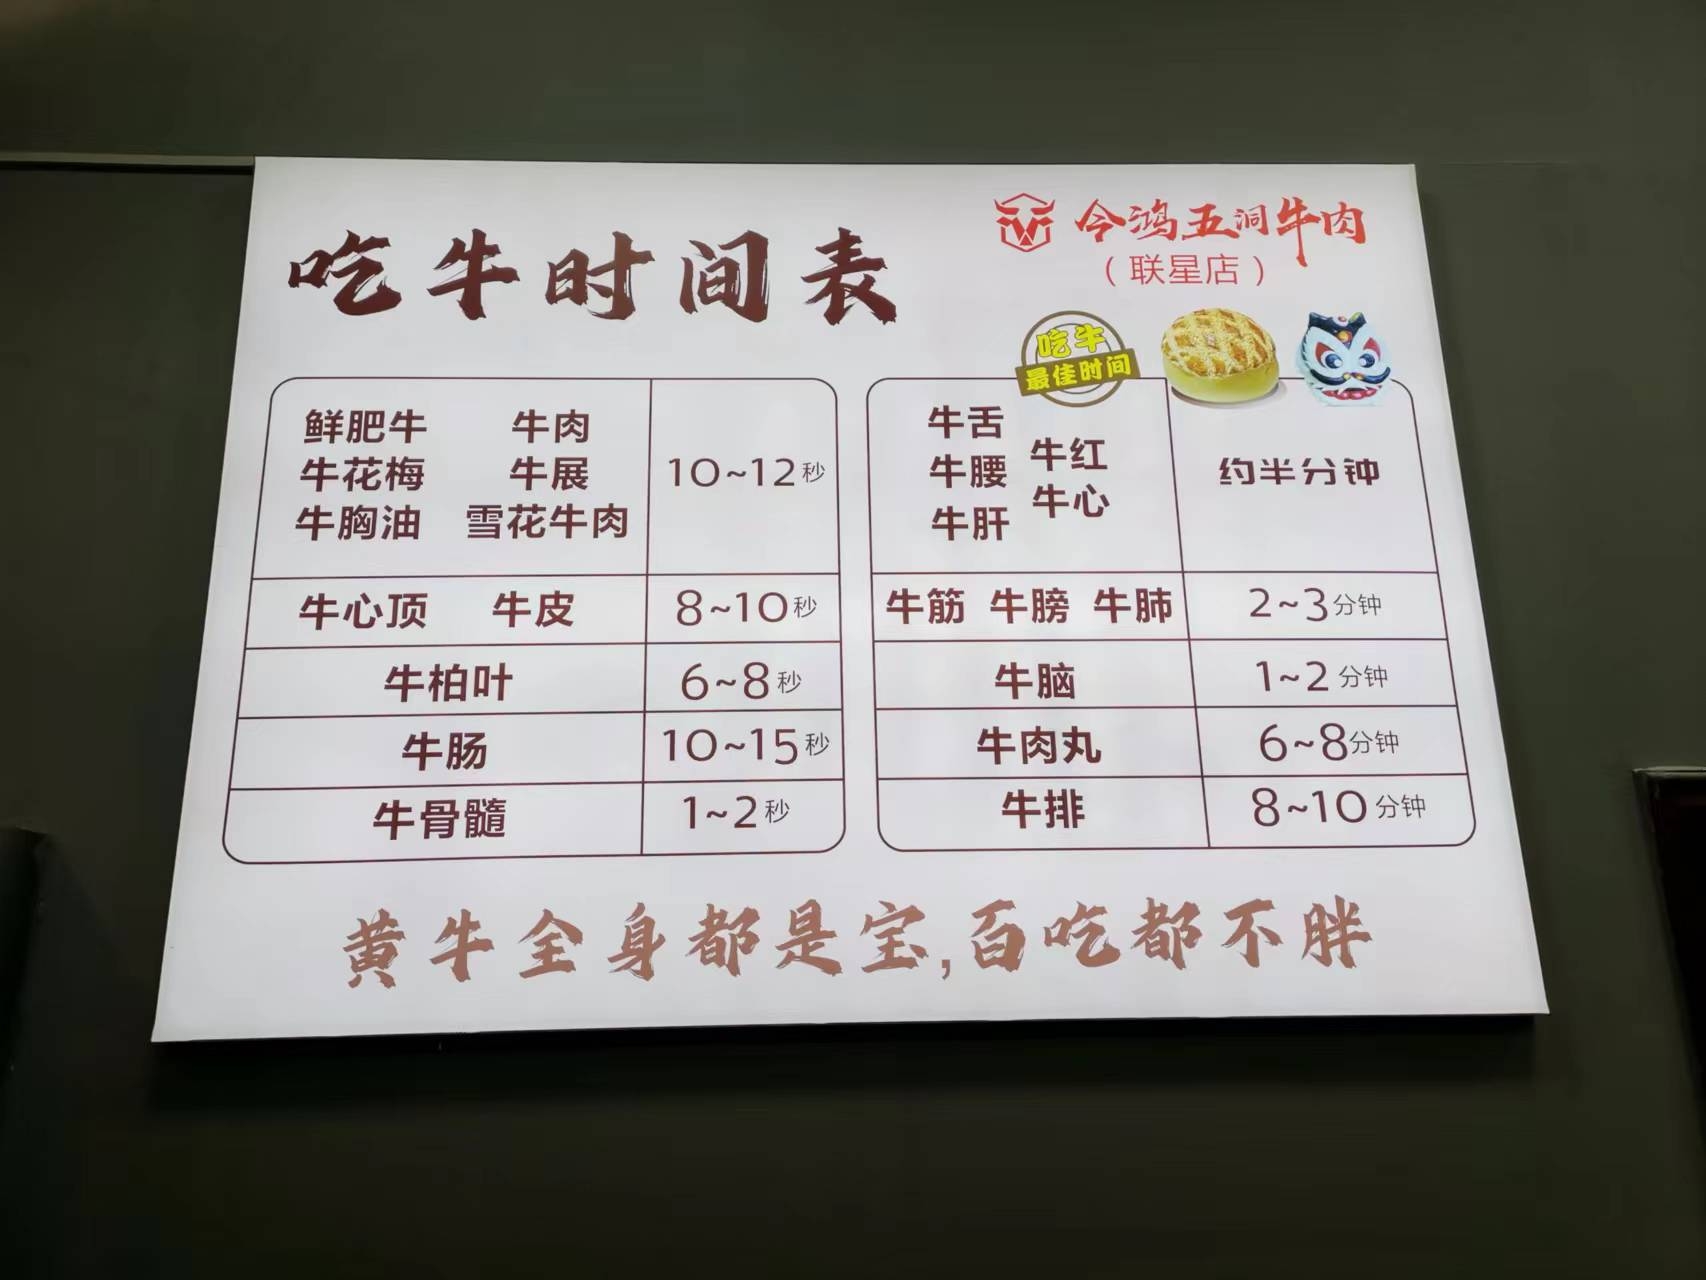 吃牛时间表
今鸿五洞牛肉
（联星店）
吃牛
最佳时间
鲜肥牛 牛肉
牛花梅 牛展
牛胸油 雪花牛肉
10~12秒
牛心顶 牛皮 8~10秒
牛柏叶 6~8秒
牛肠 10~15秒
牛骨髓 1~2秒
牛舌
牛腰
牛肝
牛红
牛心
约半分钟
牛筋 牛膀 牛肺 2~3分钟
牛脑 1~2分钟
牛肉丸 6~8分钟
牛排 8~10分钟
黄牛全身都是宝,百吃都不胖